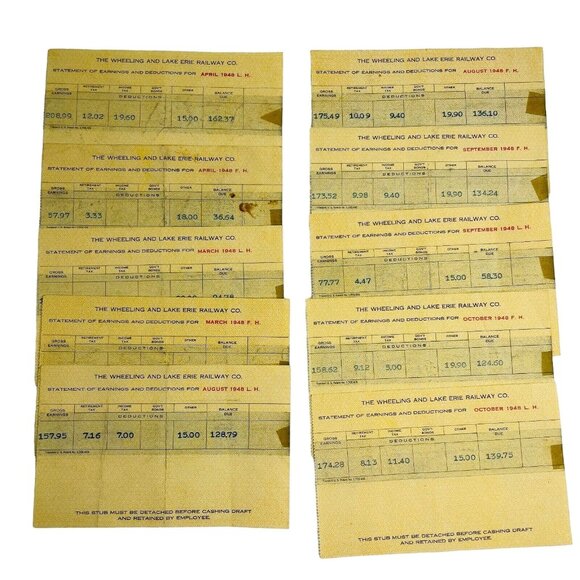 THE WHEELING AND LAKE ERIE RAILWAY CO.
STATEMENT OF EARNINGS AND DEDUCTIONS FOR APRIL 1948 L. H.
GROSS EARNINGS RETIREMENT TAX INCOME TAX GOV'T BONDS OTHER BALANCE DUE
DEDUCTIONS
208.99 12.02 19.60 15.00 162.37
THE WHEELING AND LAKE ERIE RAILWAY CO.
STATEMENT OF EARNINGS AND DEDUCTIONS FOR APRIL 1948 F. H.
GROSS EARNINGS RETIREMENT TAX INCOME TAX GOV'T BONDS OTHER BALANCE DUE
DEDUCTIONS
57.97 3.33 18.00 36.64
THE WHEELING AND LAKE ERIE RAILWAY CO.
STATEMENT OF EARNINGS AND DEDUCTIONS FOR MARCH 1948 L. H.
GROSS EARNINGS RETIREMENT TAX INCOME TAX GOV'T BONDS OTHER BALANCE DUE
DEDUCTIONS
THE WHEELING AND LAKE ERIE RAILWAY CO.
STATEMENT OF EARNINGS AND DEDUCTIONS FOR MARCH 1948 F. H.
GROSS EARNINGS RETIREMENT TAX INCOME TAX GOV'T BONDS OTHER BALANCE DUE
DEDUCTIONS
THE WHEELING AND LAKE ERIE RAILWAY CO.
STATEMENT OF EARNINGS AND DEDUCTIONS FOR AUGUST 1948 L. H.
GROSS EARNINGS RETIREMENT TAX INCOME TAX GOV'T BONDS OTHER BALANCE DUE
DEDUCTIONS
157.95 7.16 7.00 15.00 128.79
THIS STUB MUST BE DETACHED BEFORE CASHING DRAFT
AND RETAINED BY EMPLOYEE.
THE WHEELING AND LAKE ERIE RAILWAY CO.
STATEMENT OF EARNINGS AND DEDUCTIONS FOR AUGUST 1948 F. H.
GROSS EARNINGS RETIREMENT TAX INCOME TAX GOV'T BONDS OTHER BALANCE DUE
DEDUCTIONS
175.49 10.09 9.40 19.90 136.10
THE WHEELING AND LAKE ERIE RAILWAY CO.
STATEMENT OF EARNINGS AND DEDUCTIONS FOR SEPTEMBER 1948 F. H.
GROSS EARNINGS RETIREMENT TAX INCOME TAX GOV'T BONDS OTHER BALANCE DUE
DEDUCTIONS
173.52 9.98 9.40 19.90 134.24
THE WHEELING AND LAKE ERIE RAILWAY CO.
STATEMENT OF EARNINGS AND DEDUCTIONS FOR SEPTEMBER 1948 L. H.
GROSS EARNINGS RETIREMENT TAX INCOME TAX GOV'T BONDS OTHER BALANCE DUE
DEDUCTIONS
77.77 4.47 15.00 58.30
THE WHEELING AND LAKE ERIE RAILWAY CO.
STATEMENT OF EARNINGS AND DEDUCTIONS FOR OCTOBER 1948 F. H.
GROSS EARNINGS RETIREMENT TAX INCOME TAX GOV'T BONDS OTHER BALANCE DUE
DEDUCTIONS
158.62 9.12 5.00 19.90 124.60
THE WHEELING AND LAKE ERIE RAILWAY CO.
STATEMENT OF EARNINGS AND DEDUCTIONS FOR OCTOBER 1948 L. H.
GROSS EARNINGS RETIREMENT TAX INCOME TAX GOV'T BONDS OTHER BALANCE DUE
DEDUCTIONS
174.28 8.13 11.40 15.00 139.75
THIS STUB MUST BE DETACHED BEFORE CASHING DRAFT
AND RETAINED BY EMPLOYEE.